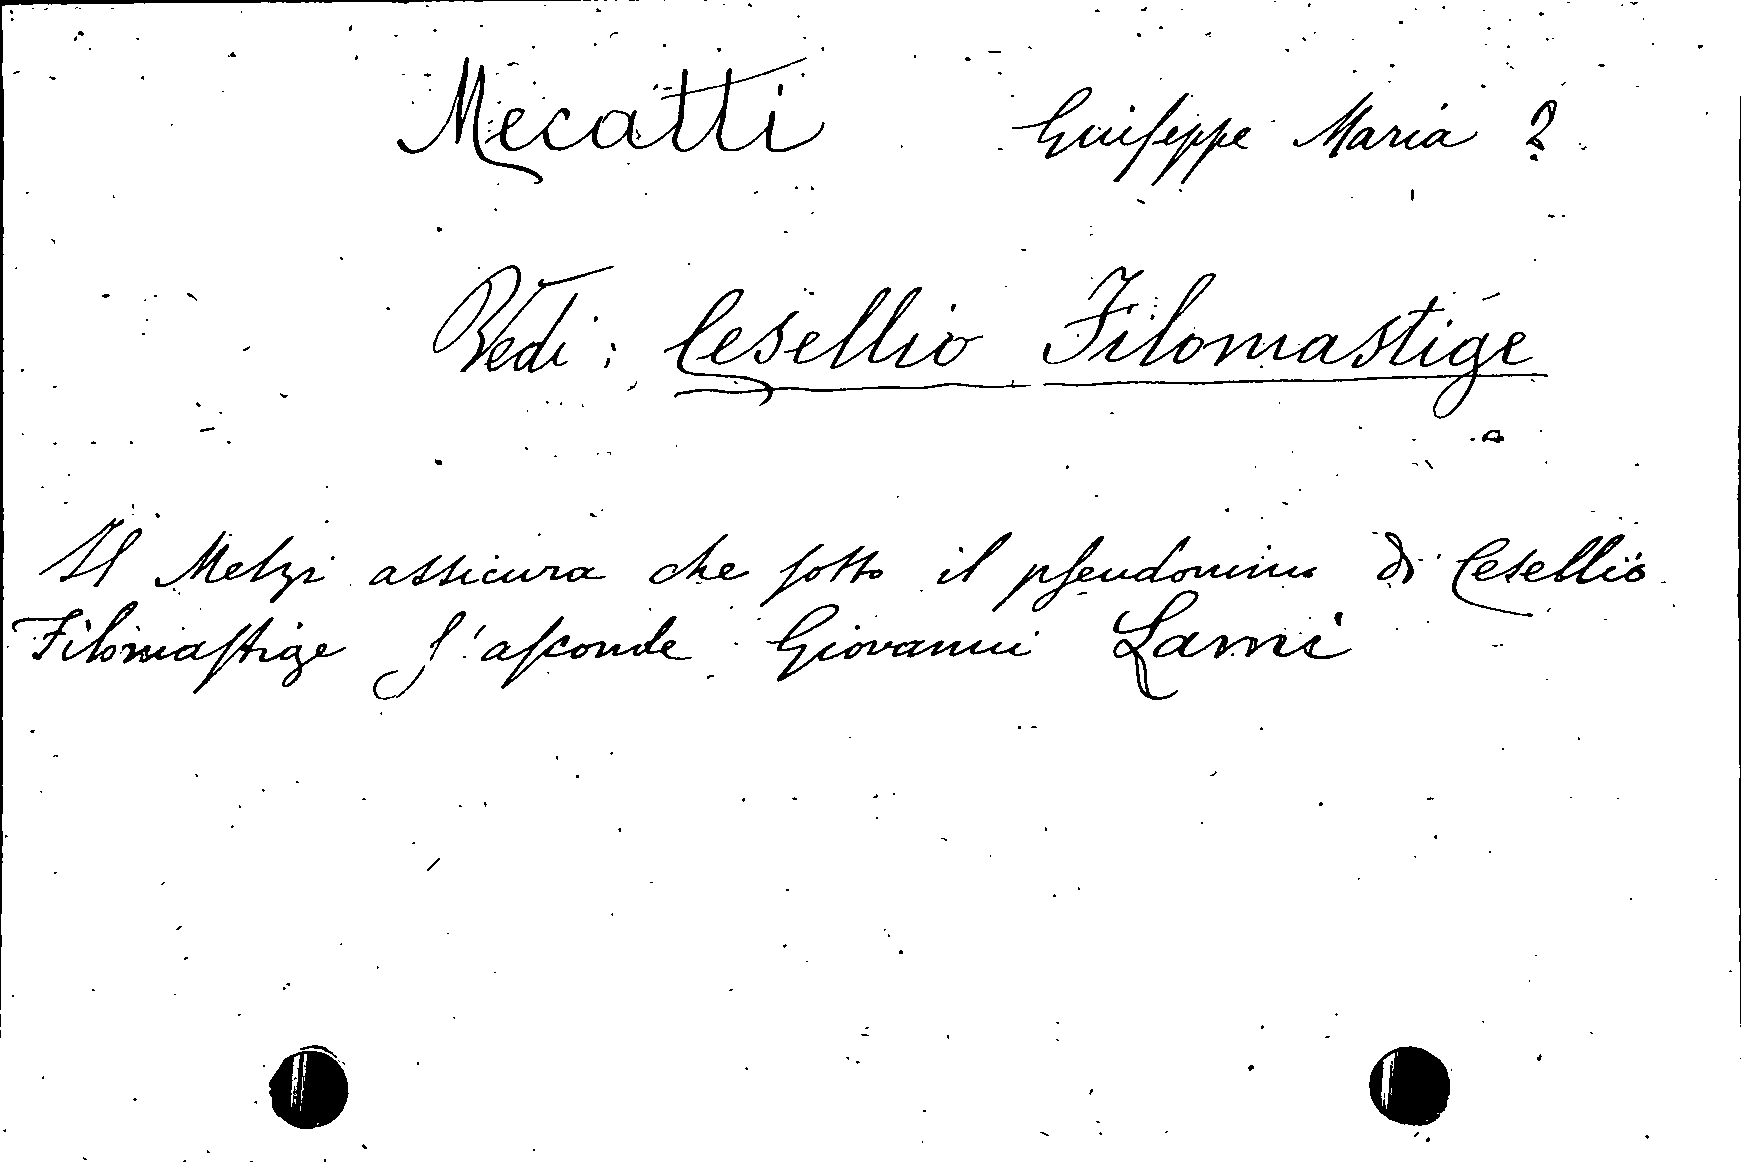 Mecatti Giuseppe Maria ?
Vedi : Cesellio Filomastige
Il Melzi assicura che sotto il pseudonimo di Cesellio
Filomastige s'asconde Giovanni Lami